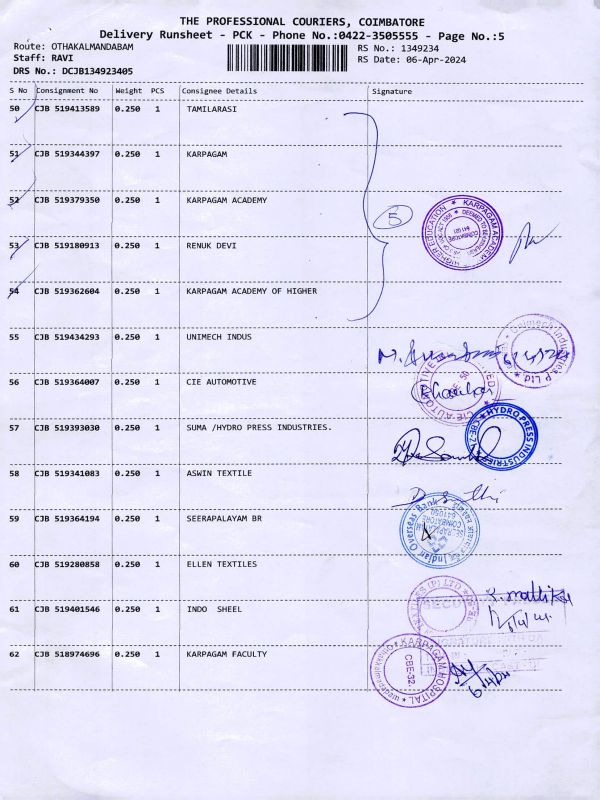 THE PROFESSIONAL COURIERS, COIMBATORE
Delivery Runsheet - PCK - Phone No.:0422-3505555 - Page No.:5
Route: OTHAKALMANDABAM RS No.: 1349234
Staff: RAVI RS Date: 06-Apr-2024
DRS No.: DCJB134923405
S No Consignment No Weight PCS Consignee Details Signature
50 CJB 519413589 0.250 1 TAMILARASI
51 CJB 519344397 0.250 1 KARPAGAM
52 CJB 519379350 0.250 1 KARPAGAM ACADEMY
5
53 CJB 519180913 0.250 1 RENUK DEVI
54 CJB 519362604 0.250 1 KARPAGAM ACADEMY OF HIGHER
55 CJB 519434293 0.250 1 UNIMECH INDUS
56 CJB 519364007 0.250 1 CIE AUTOMOTIVE
57 CJB 519393030 0.250 1 SUMA /HYDRO PRESS INDUSTRIES.
HYDRO PRESS INDUSTRIES
58 CJB 519341083 0.250 1 ASWIN TEXTILE
59 CJB 519364194 0.250 1 SEERAPALAYAM BR
Indian Overseas Bank
60 CJB 519280858 0.250 1 ELLEN TEXTILES
61 CJB 519401546 0.250 1 INDO SHEEL
62 CJB 518974696 0.250 1 KARPAGAM FACULTY
KARPAGAM HOSPITAL
CBE-32.